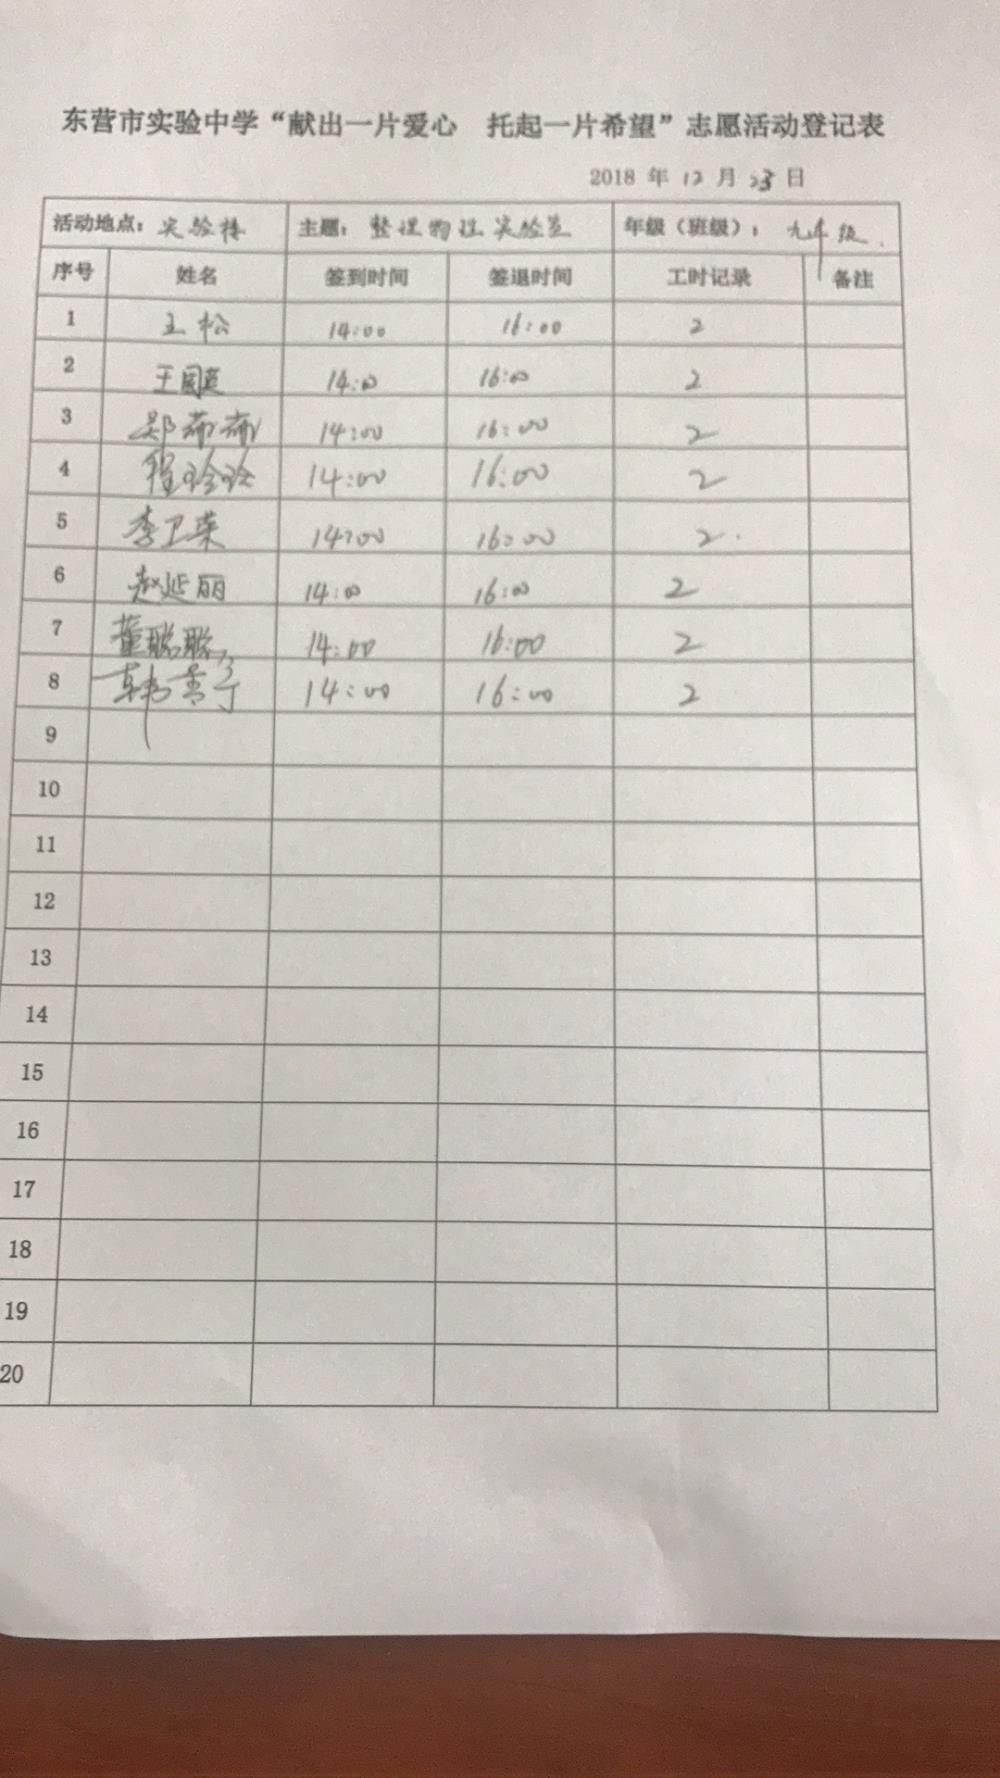 东营市实验中学“献出一片爱心 托起一片希望”志愿活动登记表
2018 年 12 月 23 日
活动地点：实验楼 主题：整理物理实验室 年级（班级）：九年级.
序号 姓名 签到时间 签退时间 工时记录 备注
1 王松 14:00 16:00 2
2 王国英 14:00 16:00 2
3 郑茹茹 14:00 16:00 2
4 程玲玲 14:00 16:00 2
5 李卫荣 14:00 16:00 2
6 赵延丽 14:00 16:00 2
7 董聪聪 14:00 16:00 2
8 韩 14:00 16:00 2
9
10
11
12
13
14
15
16
17
18
19
20